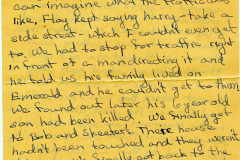 can imagine what the traffic was
like, Flay kept saying hurry - take a
side street - which I couldn't even get
to, we had to stop for traffic right
in front of a man directing it and
he told us his family lived on
Emerald and he couldn't get to them
we found out later his 6 year old
son had been killed. We finally got
to Bob and Skeeter's. There house
hadn't been touched and they weren't
finally got back to the